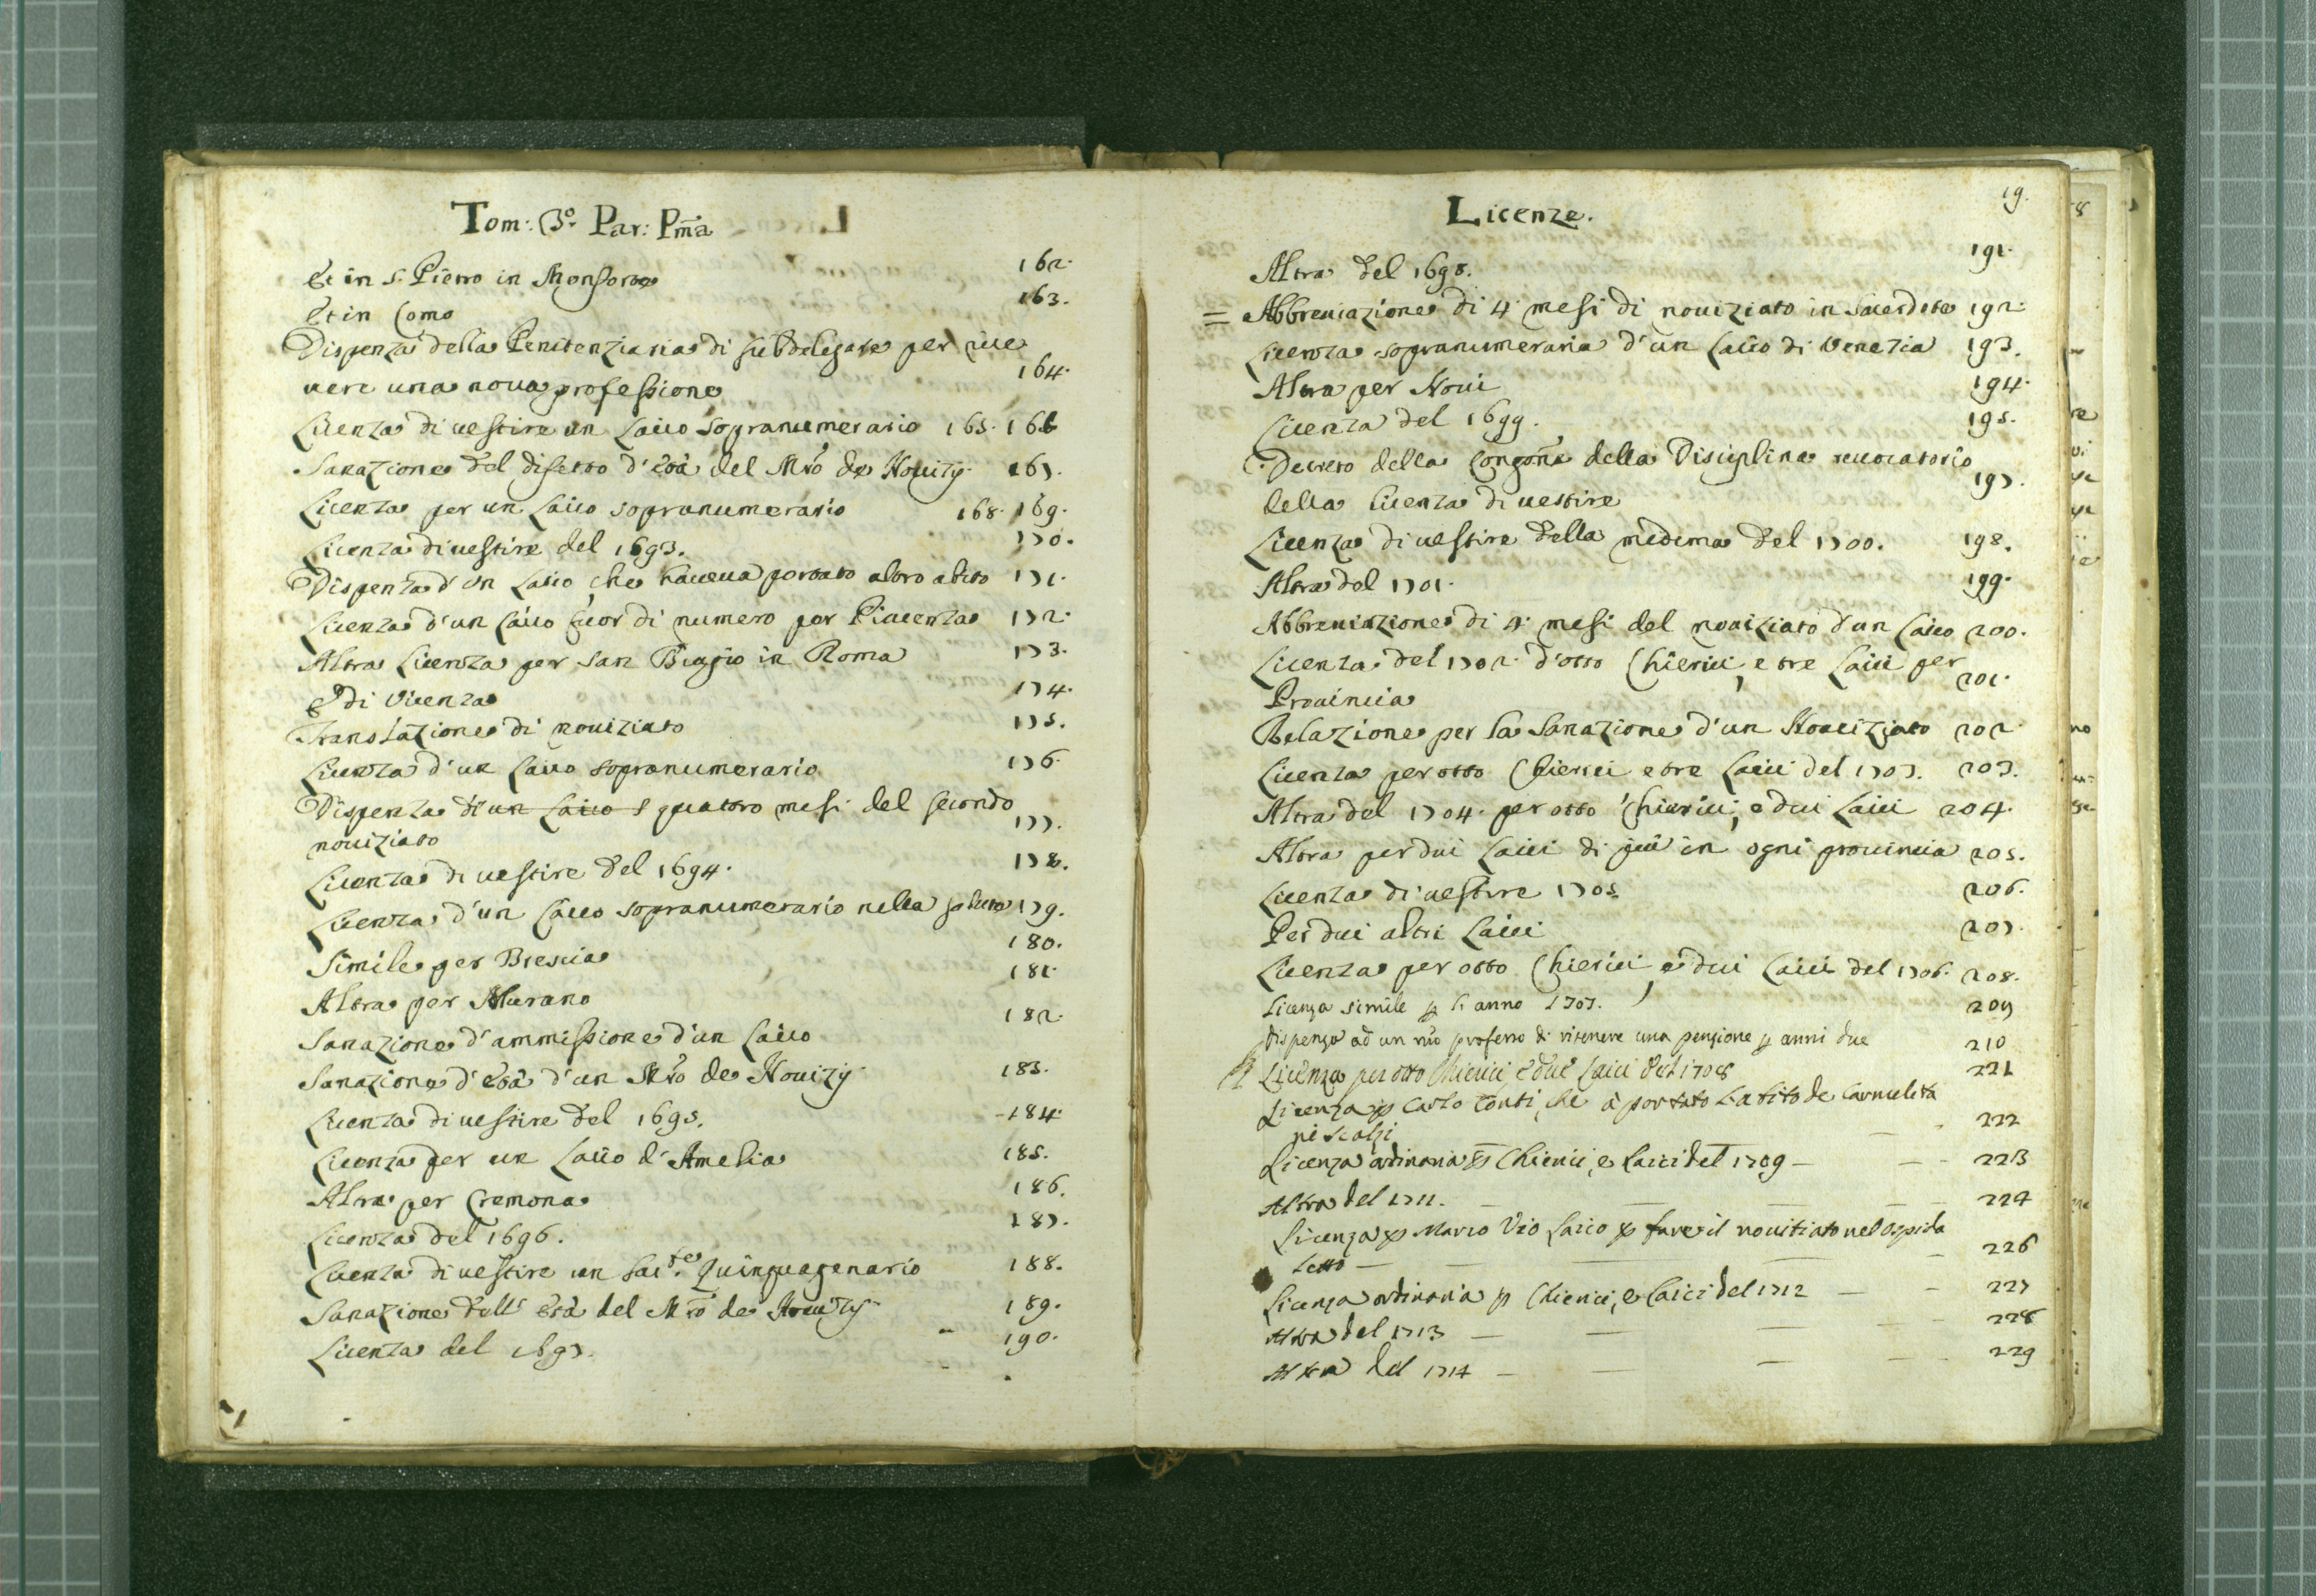 Tom: 3.º Par: Pm̃a
Et in S. Pietro in Monforte 162.
Et in Como 163.
Dispenza della Penitenziaria di subdelegare per rice
vere una noua professione 164.
Licenza di uestire un Laico sopranumerario 165. 166
Sanazione del difetto d'età del Mr̃o de Nouizÿ 167.
Licenza per un Laico sopranumerario 168. 169.
Licenza di uestire del 1693. 170.
Dispenza d'un Laico, che haueua portato altro abito 171.
Licenza d'un Laico fuor di numero per Piacenza 172.
Altra Licenza per San Biagio in Roma 173.
E di Vicenza 174.
Translazione di nouiziato 175.
Licenza d'un Laico sopranumerario 176.
Dispenza di un Laico s quattro mesi del secondo
nouiziato 177.
Licenza di uestire del 1694. 178.
Licenza d'un Laico sopranumerario nella 179.
Simile per Brescia 180.
Altra per Murano 181.
Sanazione d'ammissione d'un Laico 182.
Sanazione d'età d'un Mr̃o de Nouizÿ 183.
Licenza di uestire del 1695. 184.
Licenza per un Laico d'Amelia 185.
Altra per Cremona 186.
Licenza del 1696. 187.
Licenza di uestire un Sac.te Quinquagenario 188.
Sanazione dell' età del Mr̃o de Nouizÿ 189.
Licenza del 1697. 190.
Licenze. 19.
Altra del 1698. 191.
= Abbreuiazione di 4. mesi di nouiziato in Sacerdote 192.
Licenza sopranumeraria d'un Laico di Venezia 193.
Altra per Noui 194.
Licenza del 1699. 195.
Decreto della Congoñe della Disciplina reuocatorio
della licenza di uestire 197.
Licenza di uestire della medema del 1700. 198.
Altra del 1701. 199.
Abbreuiazione di 4. mesi del nouiziato d'un Laico 200.
Licenza del 1702. d'otto Chierici, e tre Laici per
Prouincia 201.
Relazione per la Sanazione d'un Nouiziato 202.
Licenza per otto Chierici e tre Laici del 1703. 203.
Altra del 1704. per otto Chierici, e dui Laici 204.
Altra per dui Laici di più in ogni prouincia 205.
Licenza di uestire 1705 206.
Per dui altri Laici 207.
Licenza per otto Chierici, e dui Laici del 1706. 208.
Licenza simile p l'anno 1707. 209
Dispenza ad un nr̃o professo di ritenere una pensione p anni due 210
Licenza per otto Chierici, e due Laici del 1708 221
Licenza p Carlo Conti, che à portato l'abito de Carmelita
ni scalzi 222
Licenza ordinaria p Chierici, e Laici del 1709 — 223
Altra del 1711. — 224
Licenza p Marco Vio Laico p fare il nouitiato nel Ospida
letto — 226
Licenza ordinaria p Chierici, e Laici del 1712 — 227
Altra del 1713 — 228
Altra del 1714 — 229